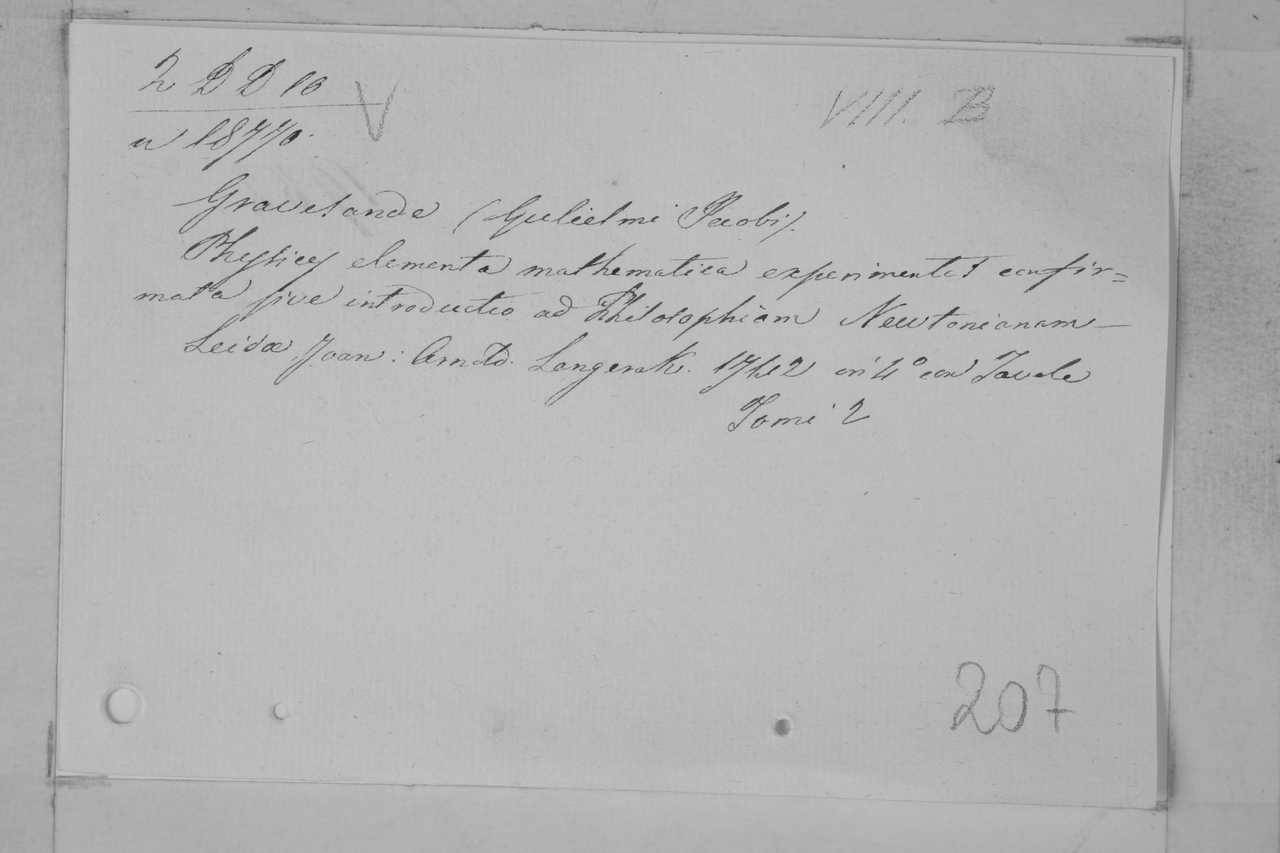 2 D D 10 V VIII. B
n 18770.
Gravesande (Gulielmi Jacobi).
Physices elementa mathematica experimentis confir=
mata sive introductio ad Philosophiam Newtonianam
Leidæ Joan: Arnold. Langerak. 1742 in 4º con Tavole
Tomi 2
207